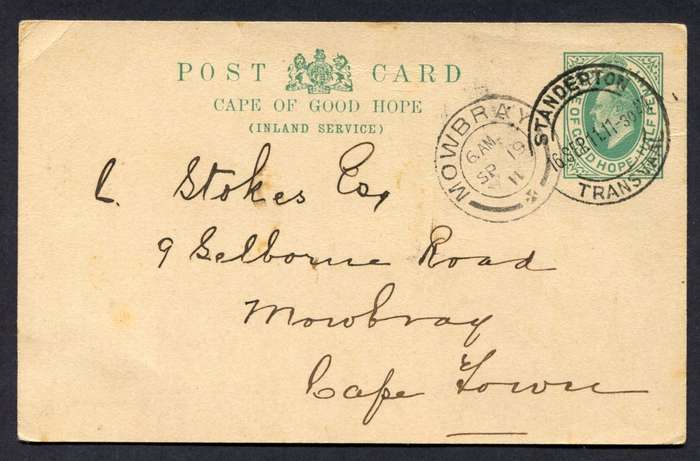 POST CARD
CAPE OF GOOD HOPE
(INLAND SERVICE)
MOWBRAY
6 AM
SP 19
11
STANDERTON
16 SEP 11. 11-30
TRANSVAAL
OF GOOD HOPE · HALF PENNY
L. Stokes Esq
9 Selborne Road
Mowbray
Cape Town